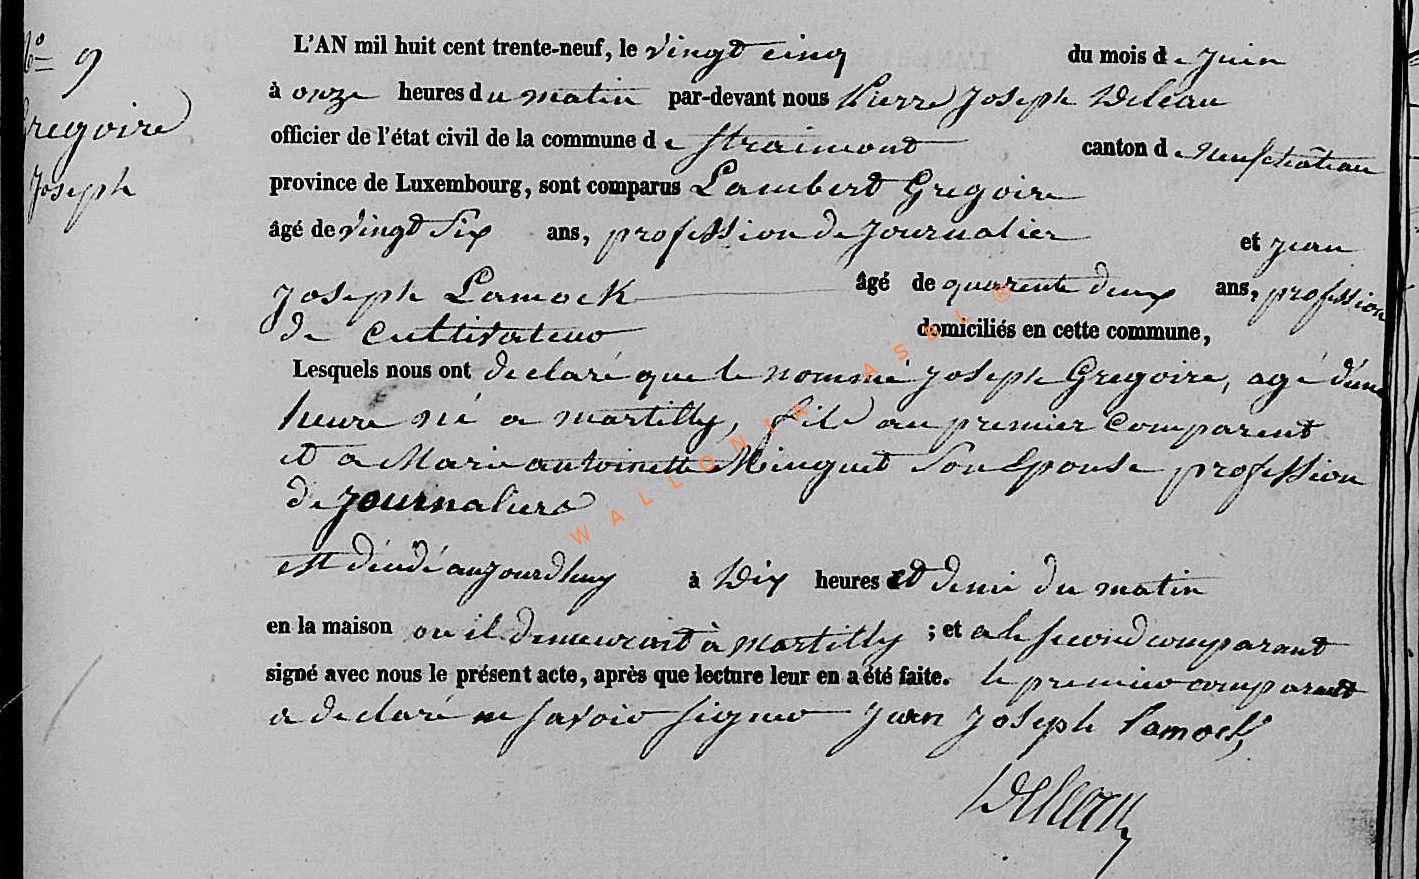 N° 9
Gregoire
Joseph
L'AN mil huit cent trente-neuf, le vingt cinq du mois de Juin
à onze heures du matin par-devant nous Pierre Joseph Deleau
officier de l'état civil de la commune de Straimont canton de Neufchâteau
province de Luxembourg, sont comparus Lambert Gregoire
âgé de vingt six ans, profession de Journalier et Jean
Joseph Lamock âgé de quarente deux ans, profession
de cultivateur domiciliés en cette commune,
Lesquels nous ont declaré que le nommé Joseph Gregoire, agé d'une
heure né a martilly, fils au premier comparent
et a Marie antoinette Minguet Son Epouse profession
de Journaliers
est décédé aujourdhuy à Dix heures et demi du matin
en la maison ou il demeurait à martilly ; et a le second comparant
signé avec nous le présent acte, après que lecture leur en a été faite. le premier comparant
a declaré ne savoir signer Jean Joseph Lamock,
Deleau
WALLONIA ASBL ®